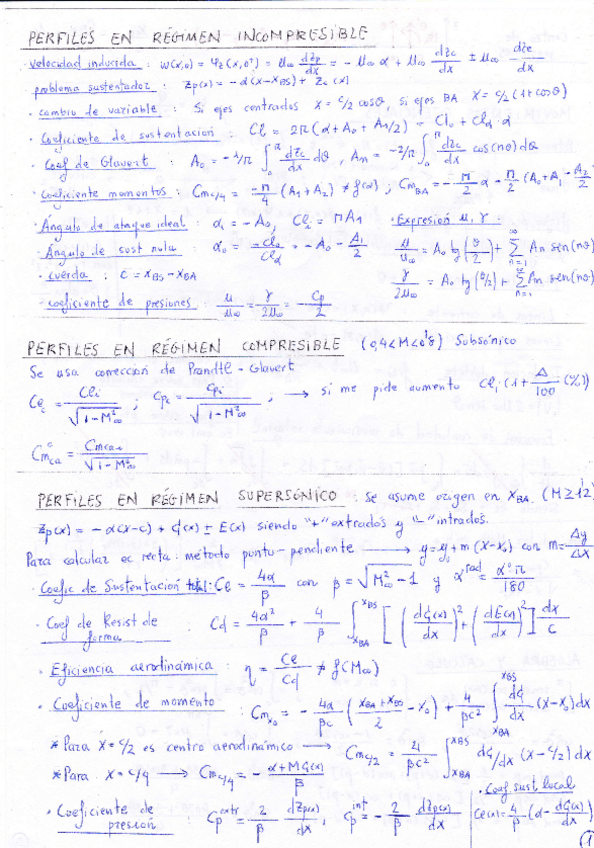 PERFILES EN RÉGIMEN INCOMPRESIBLE
· Velocidad inducida : w(x,0) = φz(x,0±) = u∞ dzp/dx = - u∞ α + u∞ dzc/dx ± u∞ dze/dx
· problema sustentador : Zp(x) = -α(x-xBS) + Zc(x)
· cambio de variable : Si ejes centrados x = c/2 cosθ, si ejes BA x = c/2 (1+cosθ)
· Coeficiente de sustentacion : Cl = 2π(α + A0 + A1/2) = Cl0 + Clα·α
· Coef de Glavert : A0 = -1/π ∫0^π dzc/dx dθ, An = -2/π ∫0^π dzc/dx cos(nθ)dθ
· Coeficiente momentos : Cmc/4 = -π/4 (A1+A2) ≠ f(α) ; CmBA = - π/2 α - π/2 (A0+A1-A2/2)
· Ángulo de ataque ideal : αi = -A0, Cli = πA1 · Expresión u, γ :
· Ángulo de sust nula : α0 = -Cl0/Clα = -A0 - A1/2 u/u∞ = A0 tg(θ/2) + ∑n=1^∞ An sen(nθ)
· cuerda : c = xBS - xBA γ/2u∞ = A0 tg(θ/2) + ∑n=1^∞ An sen(nθ)
· coeficiente de presiones : u/u∞ = γ/2u∞ = - Cp/2
PERFILES EN RÉGIMEN COMPRESIBLE (0,4<M<0'8) Subsónico
Se usa correccion de Prandtl - Glavert
Clc = Cli/√1-M∞² ; Cpc = Cpi/√1-M∞² ; ⟶ si me pide aumento Cli·(1+ Δ/100 (%))
Cmca^c = Cmca-i/√1-M∞²
PERFILES EN RÉGIMEN SUPERSÓNICO : Se asume origen en xBA. (M≥1'2)
Zp(x) = -α(x-c) + C(x) ± E(x) siendo "+" extradós y "-" intradós.
Para calcular ec recta : método punto-pendiente ⟶ y = y0 + m(x-x0) con m = Δy/Δx
· Coefic de Sustentacion total : Cl = 4α/β con β = √M∞²-1 y α^rad = α°π/180
· Coef de Resist de forma : Cd = 4α²/β + 4/β ∫xBA^xBS [(dC(x)/dx)² + (dE(x)/dx)²] dx/c
· Eficiencia aerodinámica : η = Cl/Cd ≠ f(M∞)
· Coeficiente de momento : Cmx0 = - 4α/βc (xBA+xBS/2 - x0) + 4/βc² ∫xBA^xBS dC/dx (x-x0)dx
* Para x = c/2 es centro aerodinámico ⟶ Cmc/2 = 4/βc² ∫xBA^xBS dC/dx (x-c/2)dx
* Para x = c/4 ⟶ Cmc/4 = - α+MC(x)/β
· Coef sust local
· Coeficiente de presión : Cp^extr = 2/β dZp(x)/dx, Cp^int = - 2/β dZp(x)/dx Cl(x) = 4/β (α - dC(x)/dx)
1